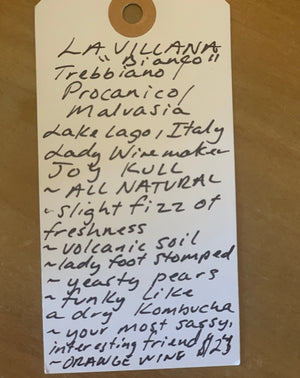 LA VILLANA
"Bianco"
Trebbiano/
Procanico/
Malvasia
Lake Lago, Italy
Lady Winemaker
Joy Kull
~ ALL NATURAL
~ slight fizz of
freshness
~ volcanic soil
~ lady foot stomped
~ yeasty pears
~ funky like
a dry Kombucha
~ your most sassy,
interesting friend
~ ORANGE WINE $23